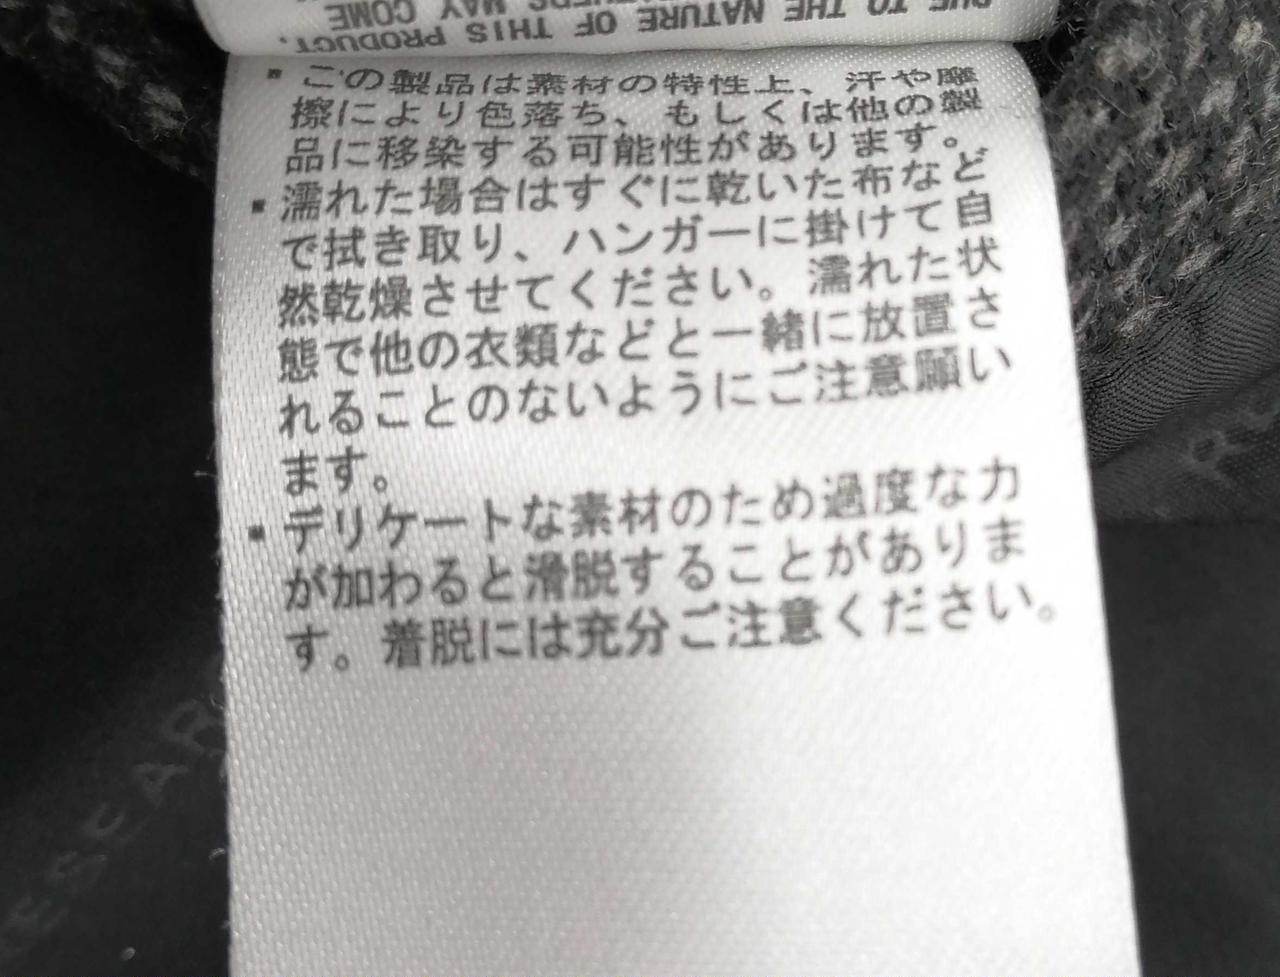 DUE TO THE NATURE OF THIS PRODUCT,
MAY COME
・この製品は素材の特性上、汗や摩
擦により色落ち、もしくは他の製
品に移染する可能性があります。
・濡れた場合はすぐに乾いた布など
で拭き取り、ハンガーに掛けて自
然乾燥させてください。濡れた状
態で他の衣類などと一緒に放置さ
れることのないようにご注意願い
ます。
・デリケートな素材のため過度な力
が加わると滑脱することがありま
す。着脱には充分ご注意ください。